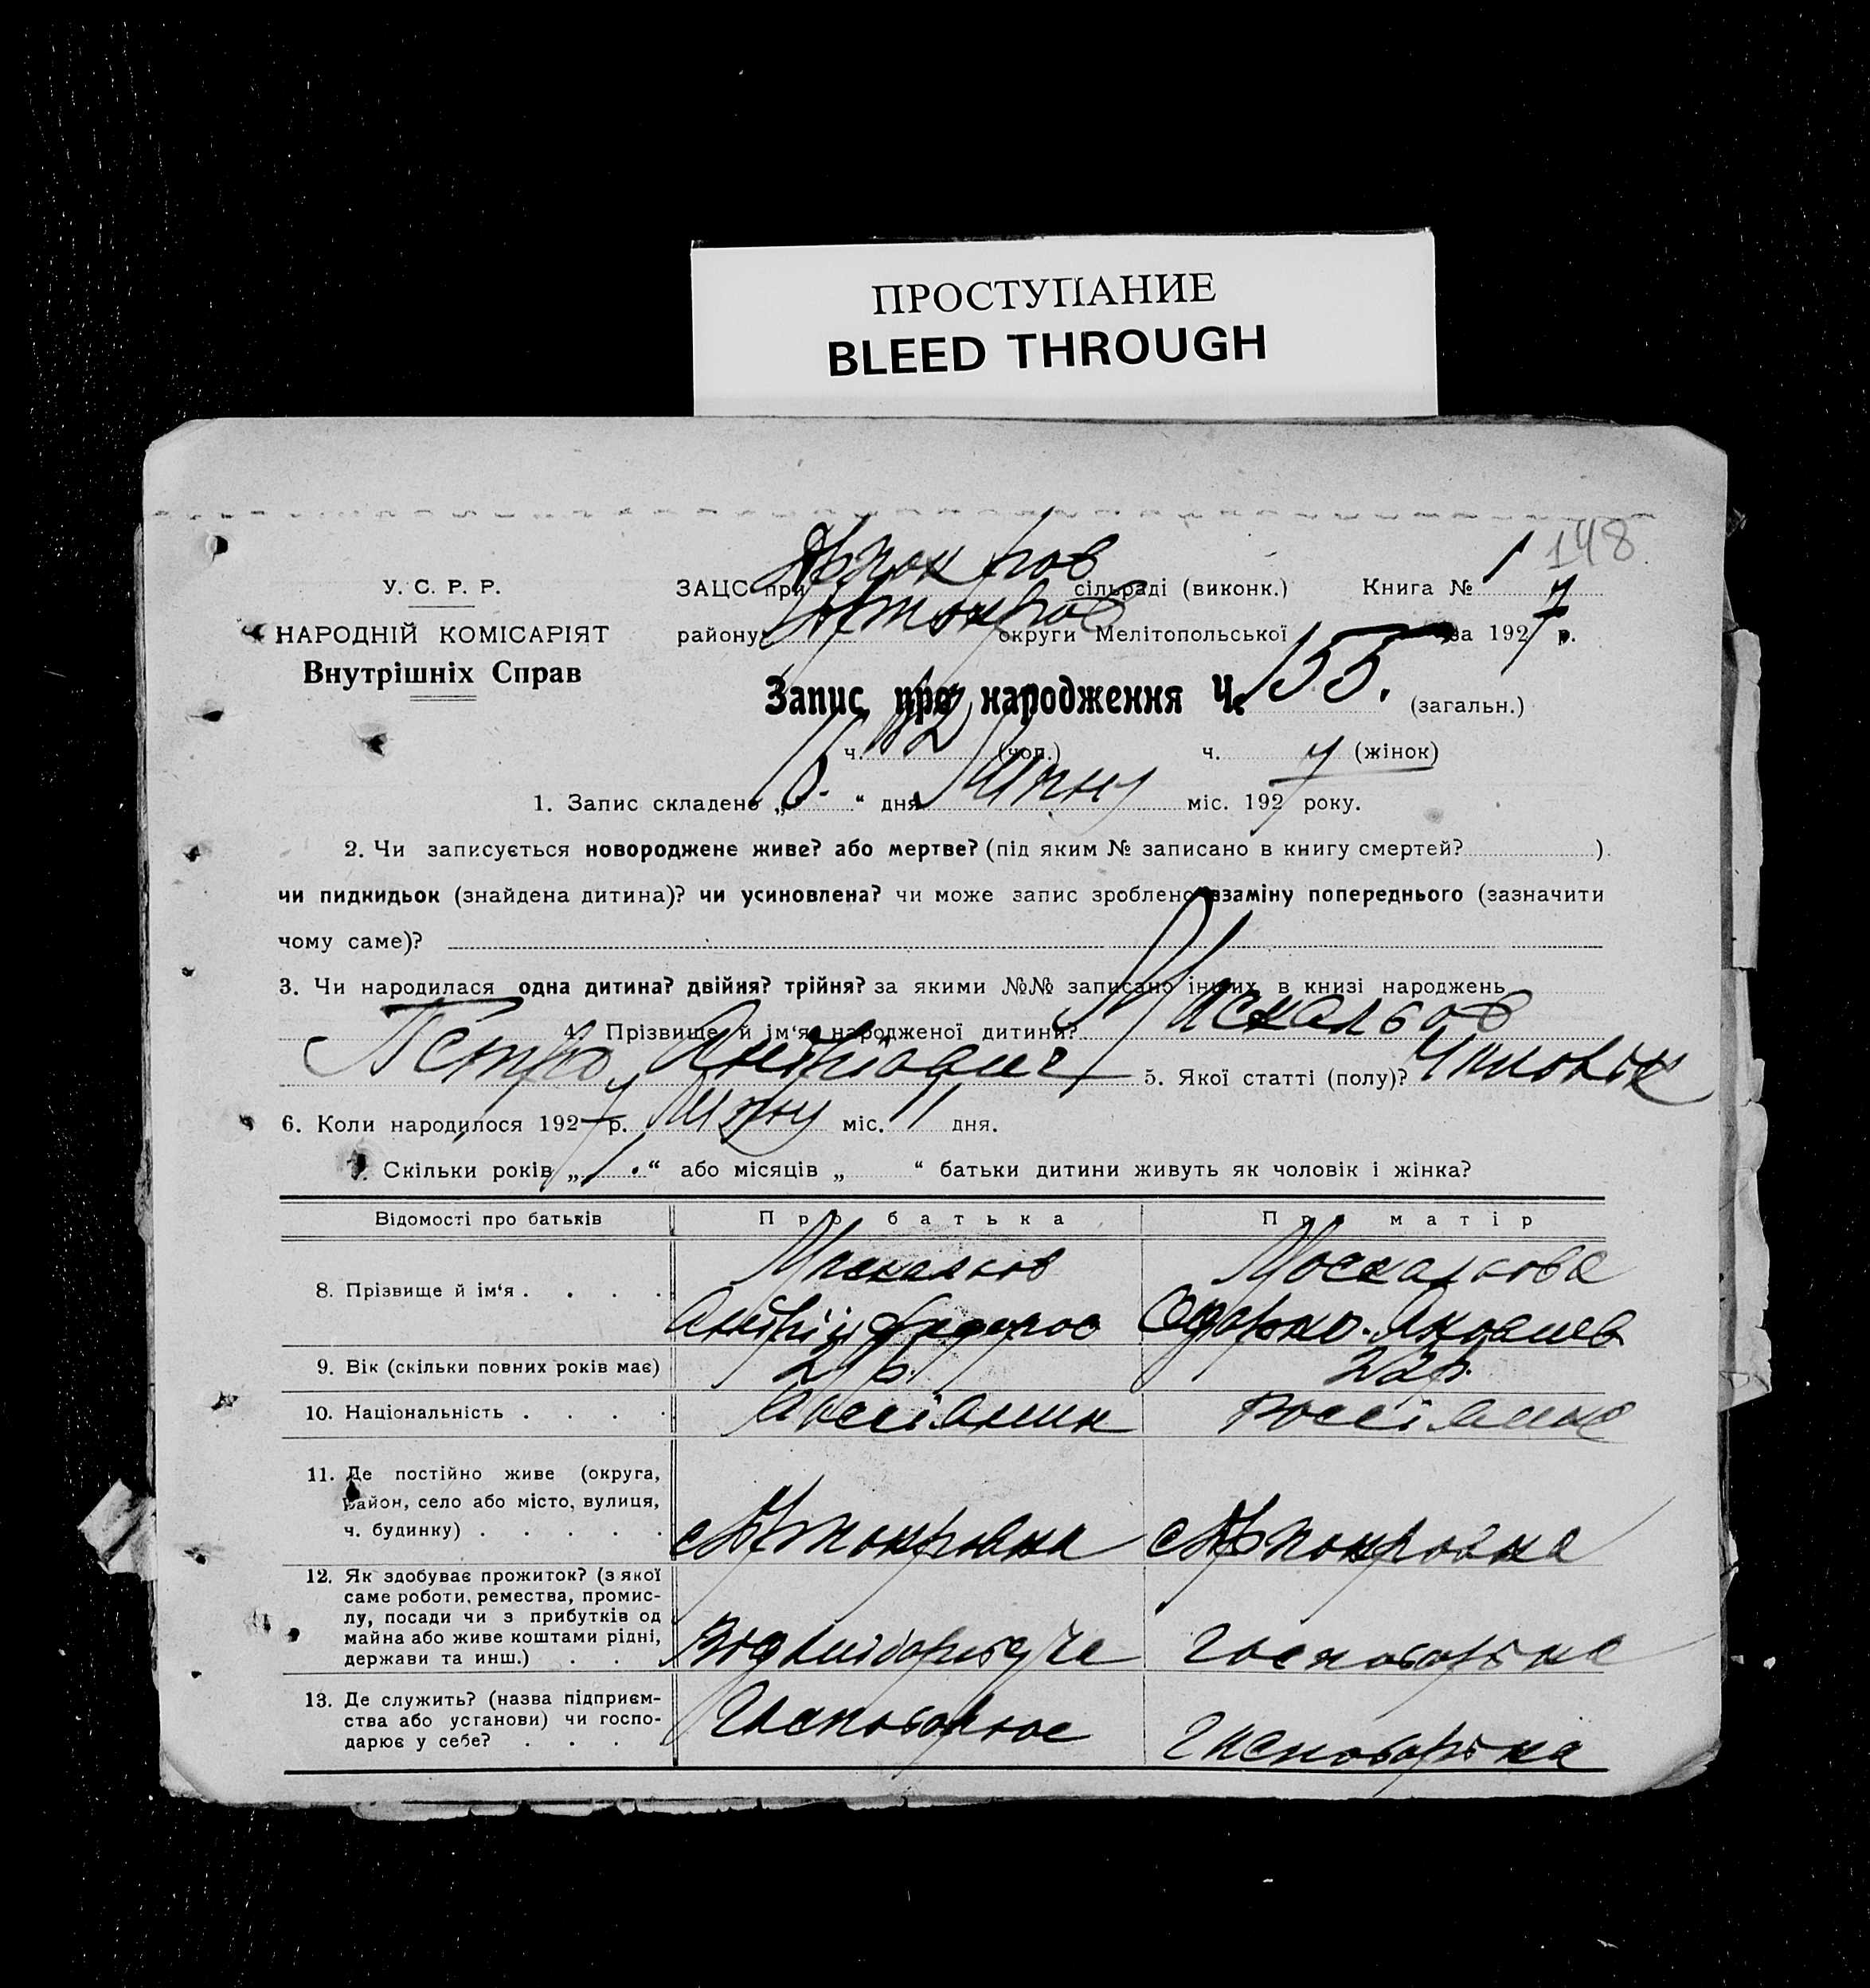 ПРОСТУПАНИЕ
BLEED THROUGH
148
У. С. Р. Р.
НАРОДНІЙ КОМІСАРІЯТ
Внутрішніх Справ
ЗАЦС при сільраді (виконк.) Книга № 1
району округи Мелітопольської за 1927 р.
Запис про народження Ч. 155. (загальн.)
ч. 82 (чол.) ч. (жінок)
1. Запис складено „ “ дня Липня міс. 1927 року.
2. Чи записується новороджене живе? або мертве? (під яким № записано в книгу смертей? ).
чи пидкидьок (знайдена дитина)? чи усиновлена? чи може запис зроблено взаміну попереднього (зазначити
чому саме)?
3. Чи народилася одна дитина? двійня? трійня? за якими №№ записано інших в книзі народжень
4. Прізвище й ім‘я народженої дитини? Москальов
Петро Андріович 5. Якої статті (полу)? Чиловік
6. Коли народилося 1927 р. міс. дня.
7. Скільки років „1.“ або місяців „ “ батьки дитини живуть як чоловік і жінка?
Відомості про батьків Про батька Про матір
8. Прізвище й ім‘я . . . . Москальов Москальова
Андрій Федоров Одарка Яковлев
9. Вік (скільки повних років має) 22р.
10. Національність . . . . Россіянин Россіянка
11. Де постійно живе (округа,
район, село або місто, вулиця,
ч. будинку) . . . . .
12. Як здобуває прожиток? (з якої
саме роботи, ремества, промис-
лу, посади чи з прибутків од
майна або живе коштами рідні,
держави та инш.) . . . Господарка
13. Де служить? (назва підприєм-
ства або установи) чи госпо-
дарює у себе? . . . Господарює Господарка